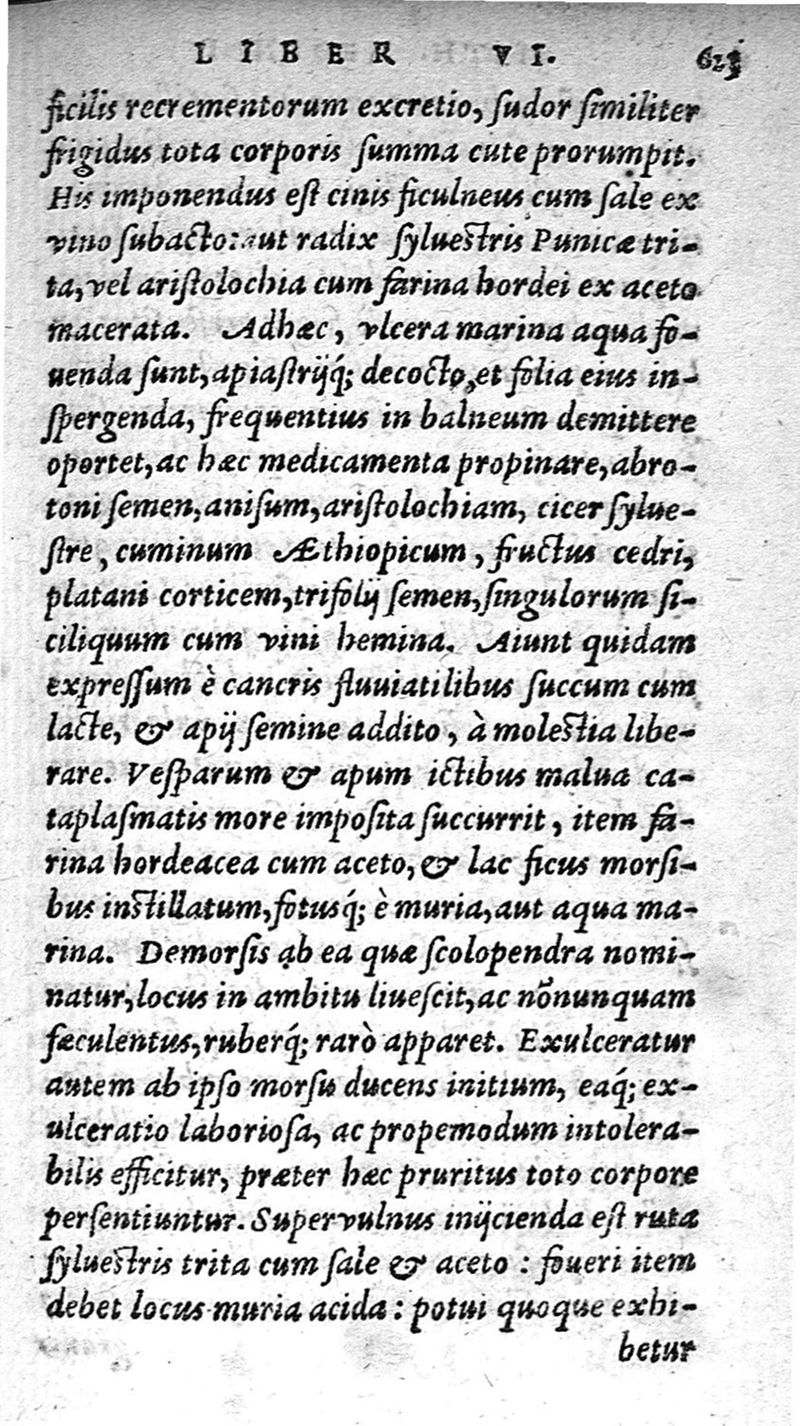 LIBER VI. 623
ficilis recrementorum excretio, ſudor ſimiliter
frigidus tota corporis ſumma cute prorumpit.
His imponendus eſt cinis ficulneus cum ſale ex
vino ſubacto: aut radix ſylueſtris Punicæ tri-
ta, vel ariſtolochia cum farina hordei ex aceto
macerata. Adhæc, vlcera marina aqua fo-
uenda ſunt, apiaſtrijq́; decocto, et folia eius in-
ſpergenda, frequentius in balneum demittere
oportet, ac hæc medicamenta propinare, abro-
toni ſemen, aniſum, ariſtolochiam, cicer ſylue-
ſtre, cuminum Æthiopicum, fructus cedri,
platani corticem, trifolij ſemen, ſingulorum ſi-
ciliquum cum vini hemina. Aiunt quidam
expreſſum è cancris fluuiatilibus ſuccum cum
lacte, & apij ſemine addito, à moleſtia libe-
rare. Veſparum & apum ictibus malua ca-
taplaſmatis more impoſita ſuccurrit, item fa-
rina hordeacea cum aceto, & lac ficus morſi-
bus inſtillatum, fotusq́; è muria, aut aqua ma-
rina. Demorſis ab ea quæ ſcolopendra nomi-
natur, locus in ambitu liueſcit, ac nõnunquam
fæculentus, ruberq́; rarò apparet. Exulceratur
autem ab ipſo morſu ducens initium, eaq́; ex-
ulceratio laborioſa, ac propemodum intolera-
bilis efficitur, præter hæc pruritus toto corpore
perſentiuntur. Super vulnus inijcienda eſt ruta
ſylueſtris trita cum ſale & aceto : foueri item
debet locus muria acida : potui quoque exhi-
betur